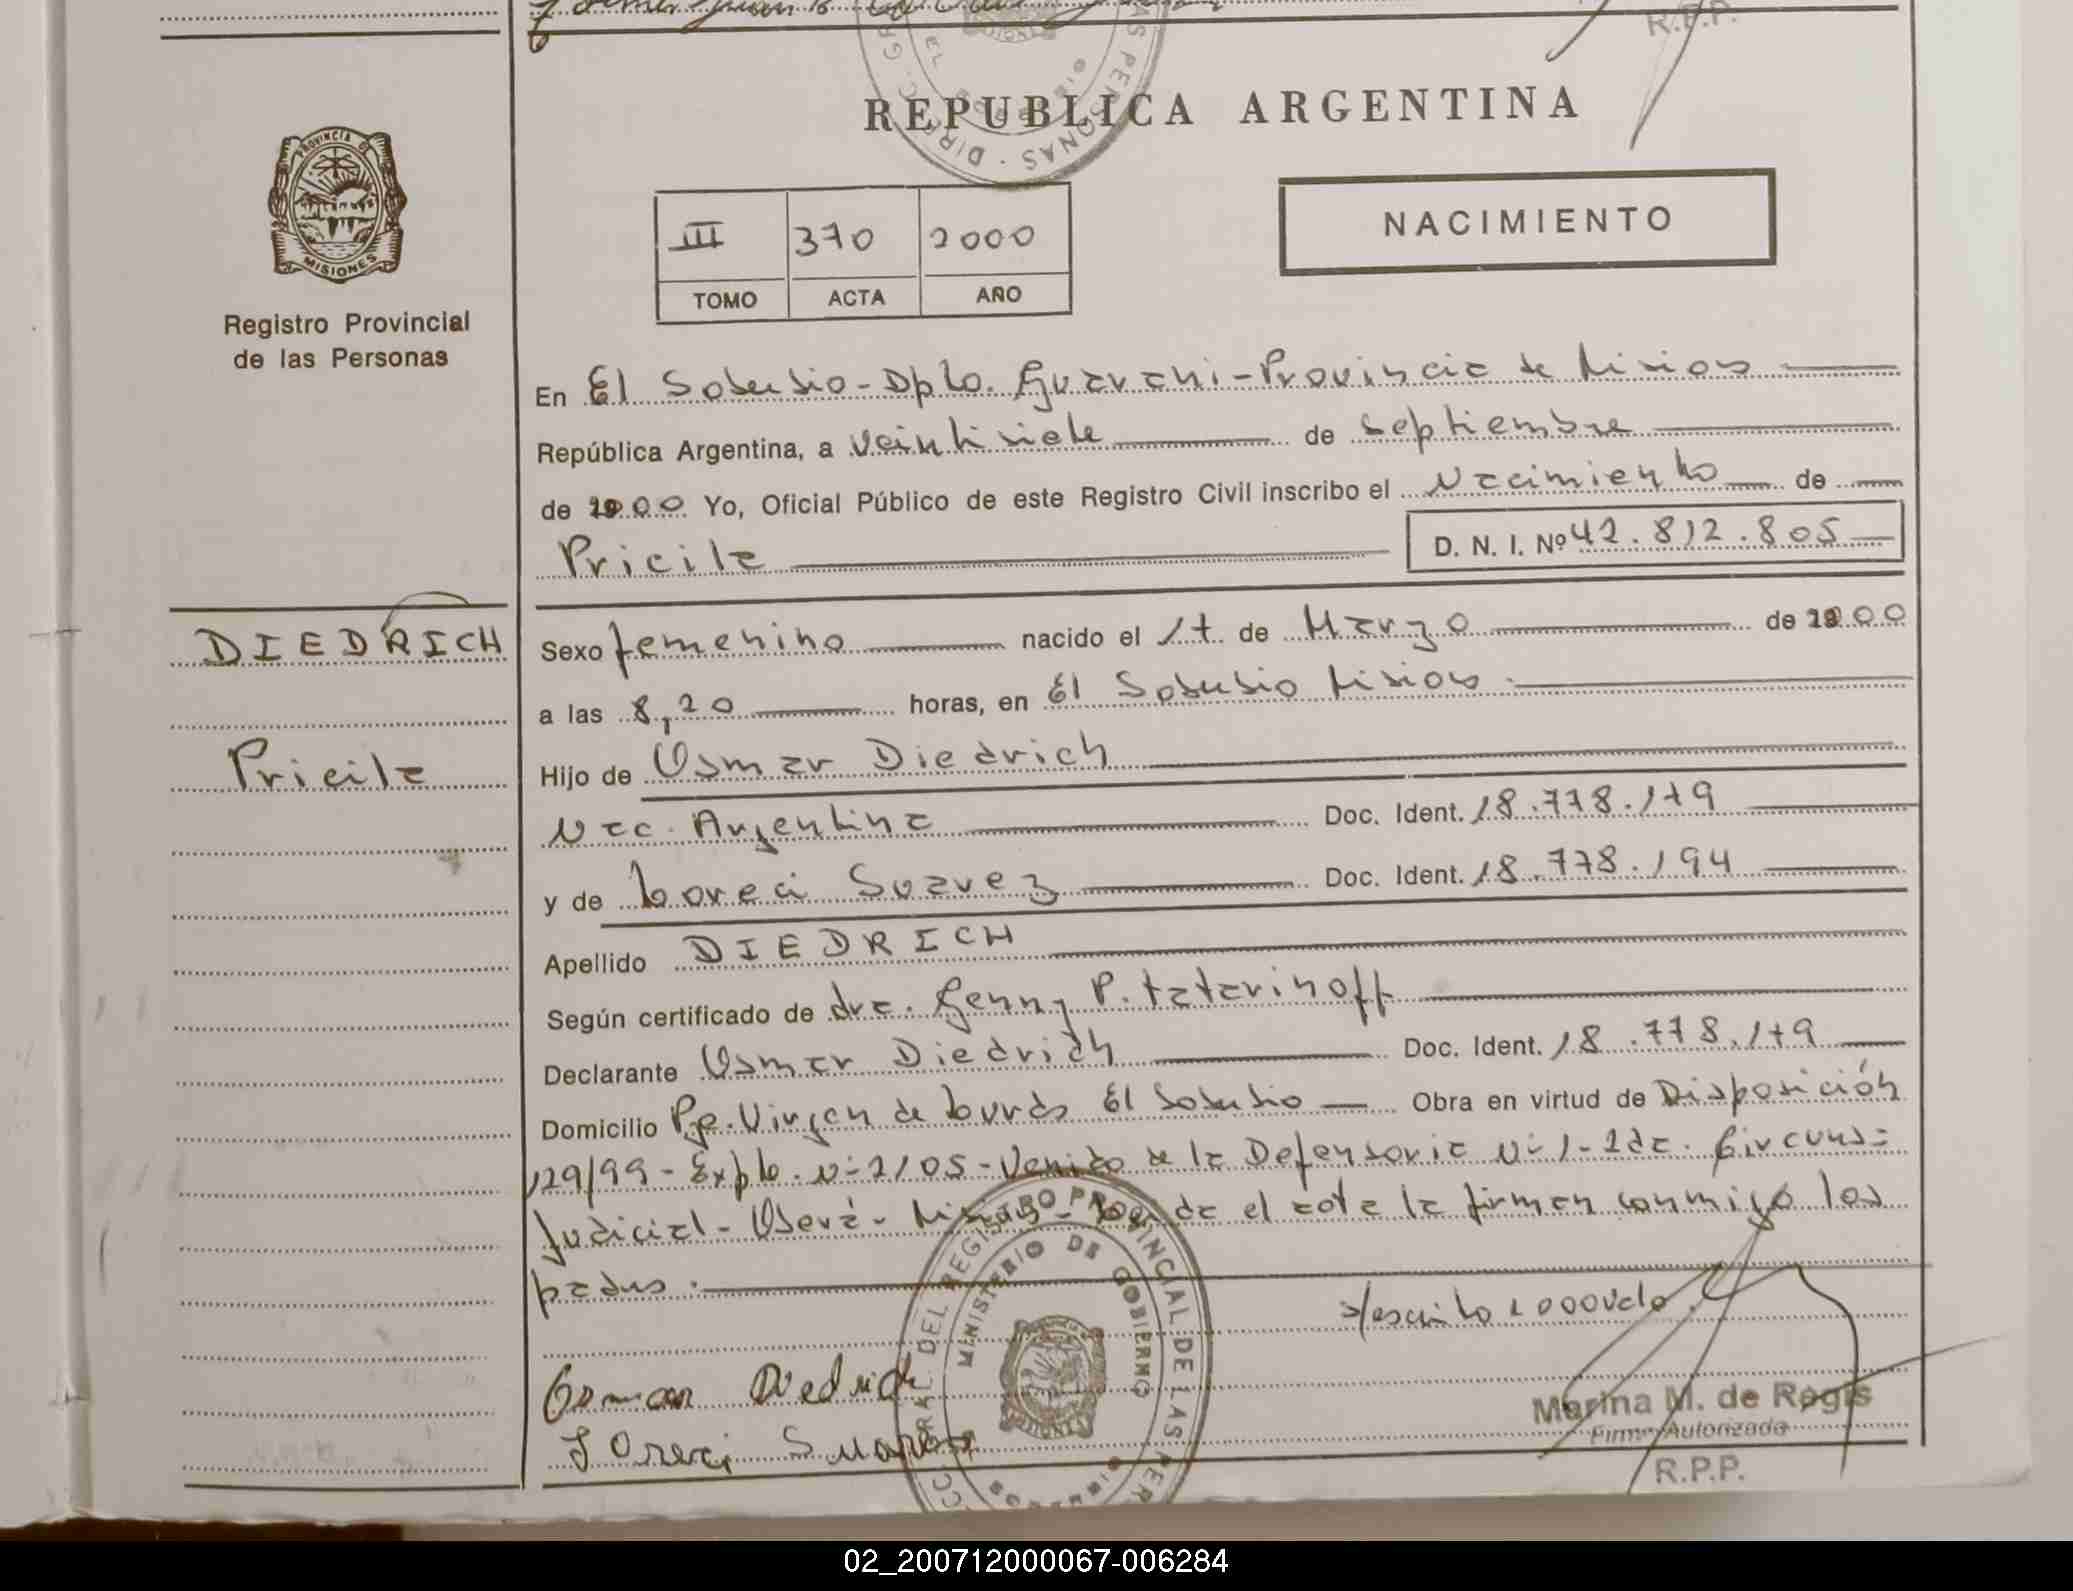 R.P.P.
REPUBLICA ARGENTINA
PROVINCIA DE
MISIONES
Registro Provincial
de las Personas
III 370 2000
TOMO ACTA AÑO
NACIMIENTO
En El Soberbio - Dpto. Guarani - Provincia de Misiones
República Argentina, a veintisiete de septiembre
de 2000 Yo, Oficial Público de este Registro Civil inscribo el Nacimiento de
Pricila D. N. I. Nº 42.812.805
DIEDRICH
Pricila
Sexo femenino nacido el 17 de Marzo de 2000
a las 8,20 horas, en El Soberbio Misiones.
Hijo de Osmar Diedrich
Nac. Argentina Doc. Ident. 18.778.179
y de Loreci Suarez Doc. Ident. 18.778.194
Apellido DIEDRICH
Según certificado de dra. Genny P. Tatarinoff
Declarante Osmar Diedrich Doc. Ident. 18.778.179
Domicilio Pje. Virgen de Lourdes El Soberbio Obra en virtud de Disposición
129/99 - Expte. Nº 2105 - Venido de la Defensoria Nº 1 - 2da. Circuns=
Judicial - Oberá - Misiones - el acta la firman conmigo los
padres.
s/escrito 2000 Vale.
Osmar Diedrich
Loreci Suarez
DEL REGISTRO PROVINCIAL DE LAS PER
MINISTERIO DE GOBIERNO
MISIONES
Marina M. de Regis
Firma Autorizada
R.P.P.
02_200712000067-006284